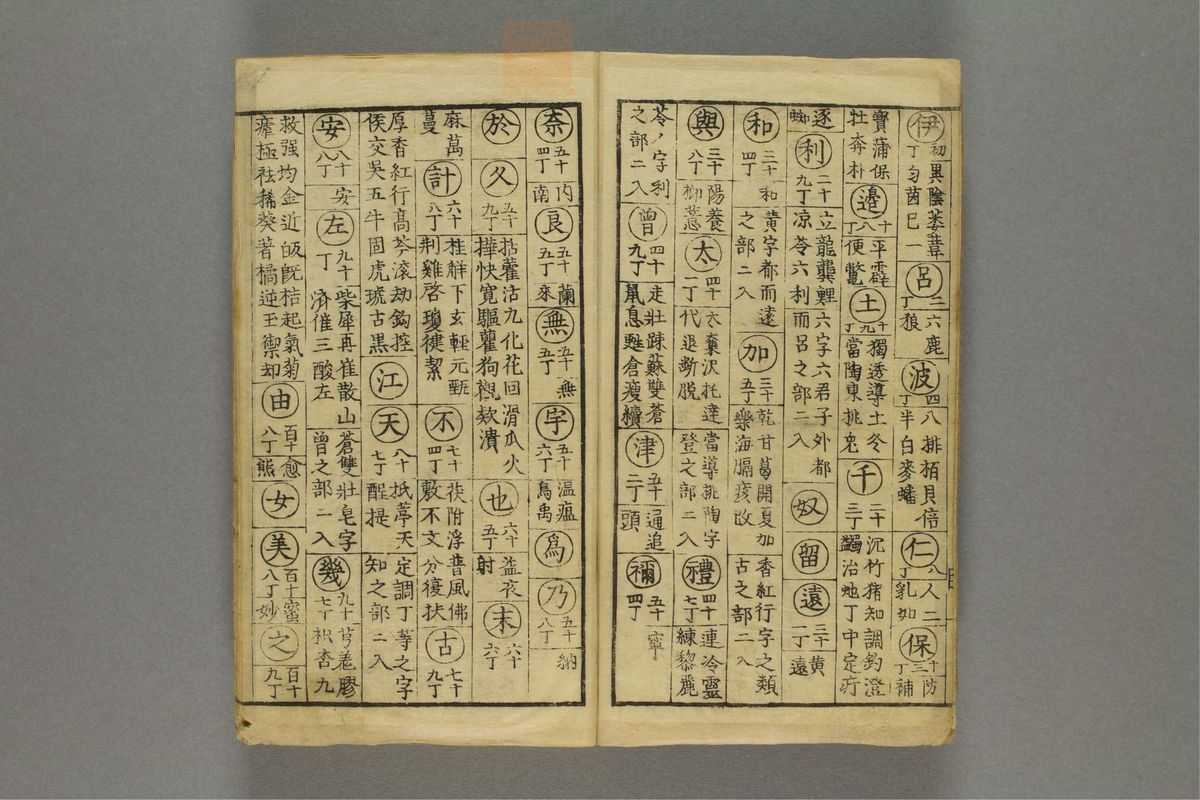 伊 初丁 異陰萎葦
匀茵已一
呂 三丁 六鹿
狼
波 四丁 八排栢貝倍
半白麥蟠
仁 八丁 人二
乳如
保 十三丁 防
補
寶蒲保
牡奔朴
邉 十八丁 平霹
便鼈
土 十九丁 獨透導土冬
當陶東挑兎
千 二十三丁 沉竹猪知調釣澄
治虵丁中定疔
逐
蜘
利 二十九丁 立龍龔鯉六字六君子外都
凉苓六利而呂之部二入
奴
留
遠 三十丁 黄
遠
和 三十四丁 和黄字都而遠
之部二入
加 三十五丁 乾甘葛開夏加香紅行字之類
藥海膈痎改古之部二入
與 三十八丁 陽養
柳薏
太 四十一丁 太棗沢托達當導挑陶字
代追断脱登之部二入
禮 四十七丁 連冷靈
練黎麗
苓ノ字利
之部二入
曽 四十九丁 走壯踈蘇雙蒼
鼠息甦倉瘦續
津 五十二丁 通追
頭
禰 五十四丁 寧
奈 五十四丁 内
南
良 五十五丁 蘭
來
無 五十五丁 無
宇 五十六丁 温瘟
烏禹
為
乃 五十八丁 納
於
久 五十九丁 括藿活九化花回滑瓜火
快寛驅狗欬潰
也 六十五丁 益夜
射
末 六十六丁
麻萬
蔓
計 六十八丁 桂觧下玄輕元甄
荆雞啓瓊犍絜
不 七十四丁 茯附浮普風佛
敷不文分復扶
古 七十九丁
厚香紅行髙苓滚劫鈎控
侯交吳五牛固虎琥古黒
江
天 八十七丁 抵葶天定調丁等之字
醒提知之部二入
安 八十八丁 安
左 九十丁 柴犀再崔散山蒼雙壯皂字
済催三酸左曽之部二入
幾 九十七丁 芎羗膠
枳杏九
救强均金近皈既桔起氣菊
瘧極祛豨葵著橘逆玉禦却
由 百十八丁 愈
熊
女
美 百十八丁 蜜
妙
之 百十九丁